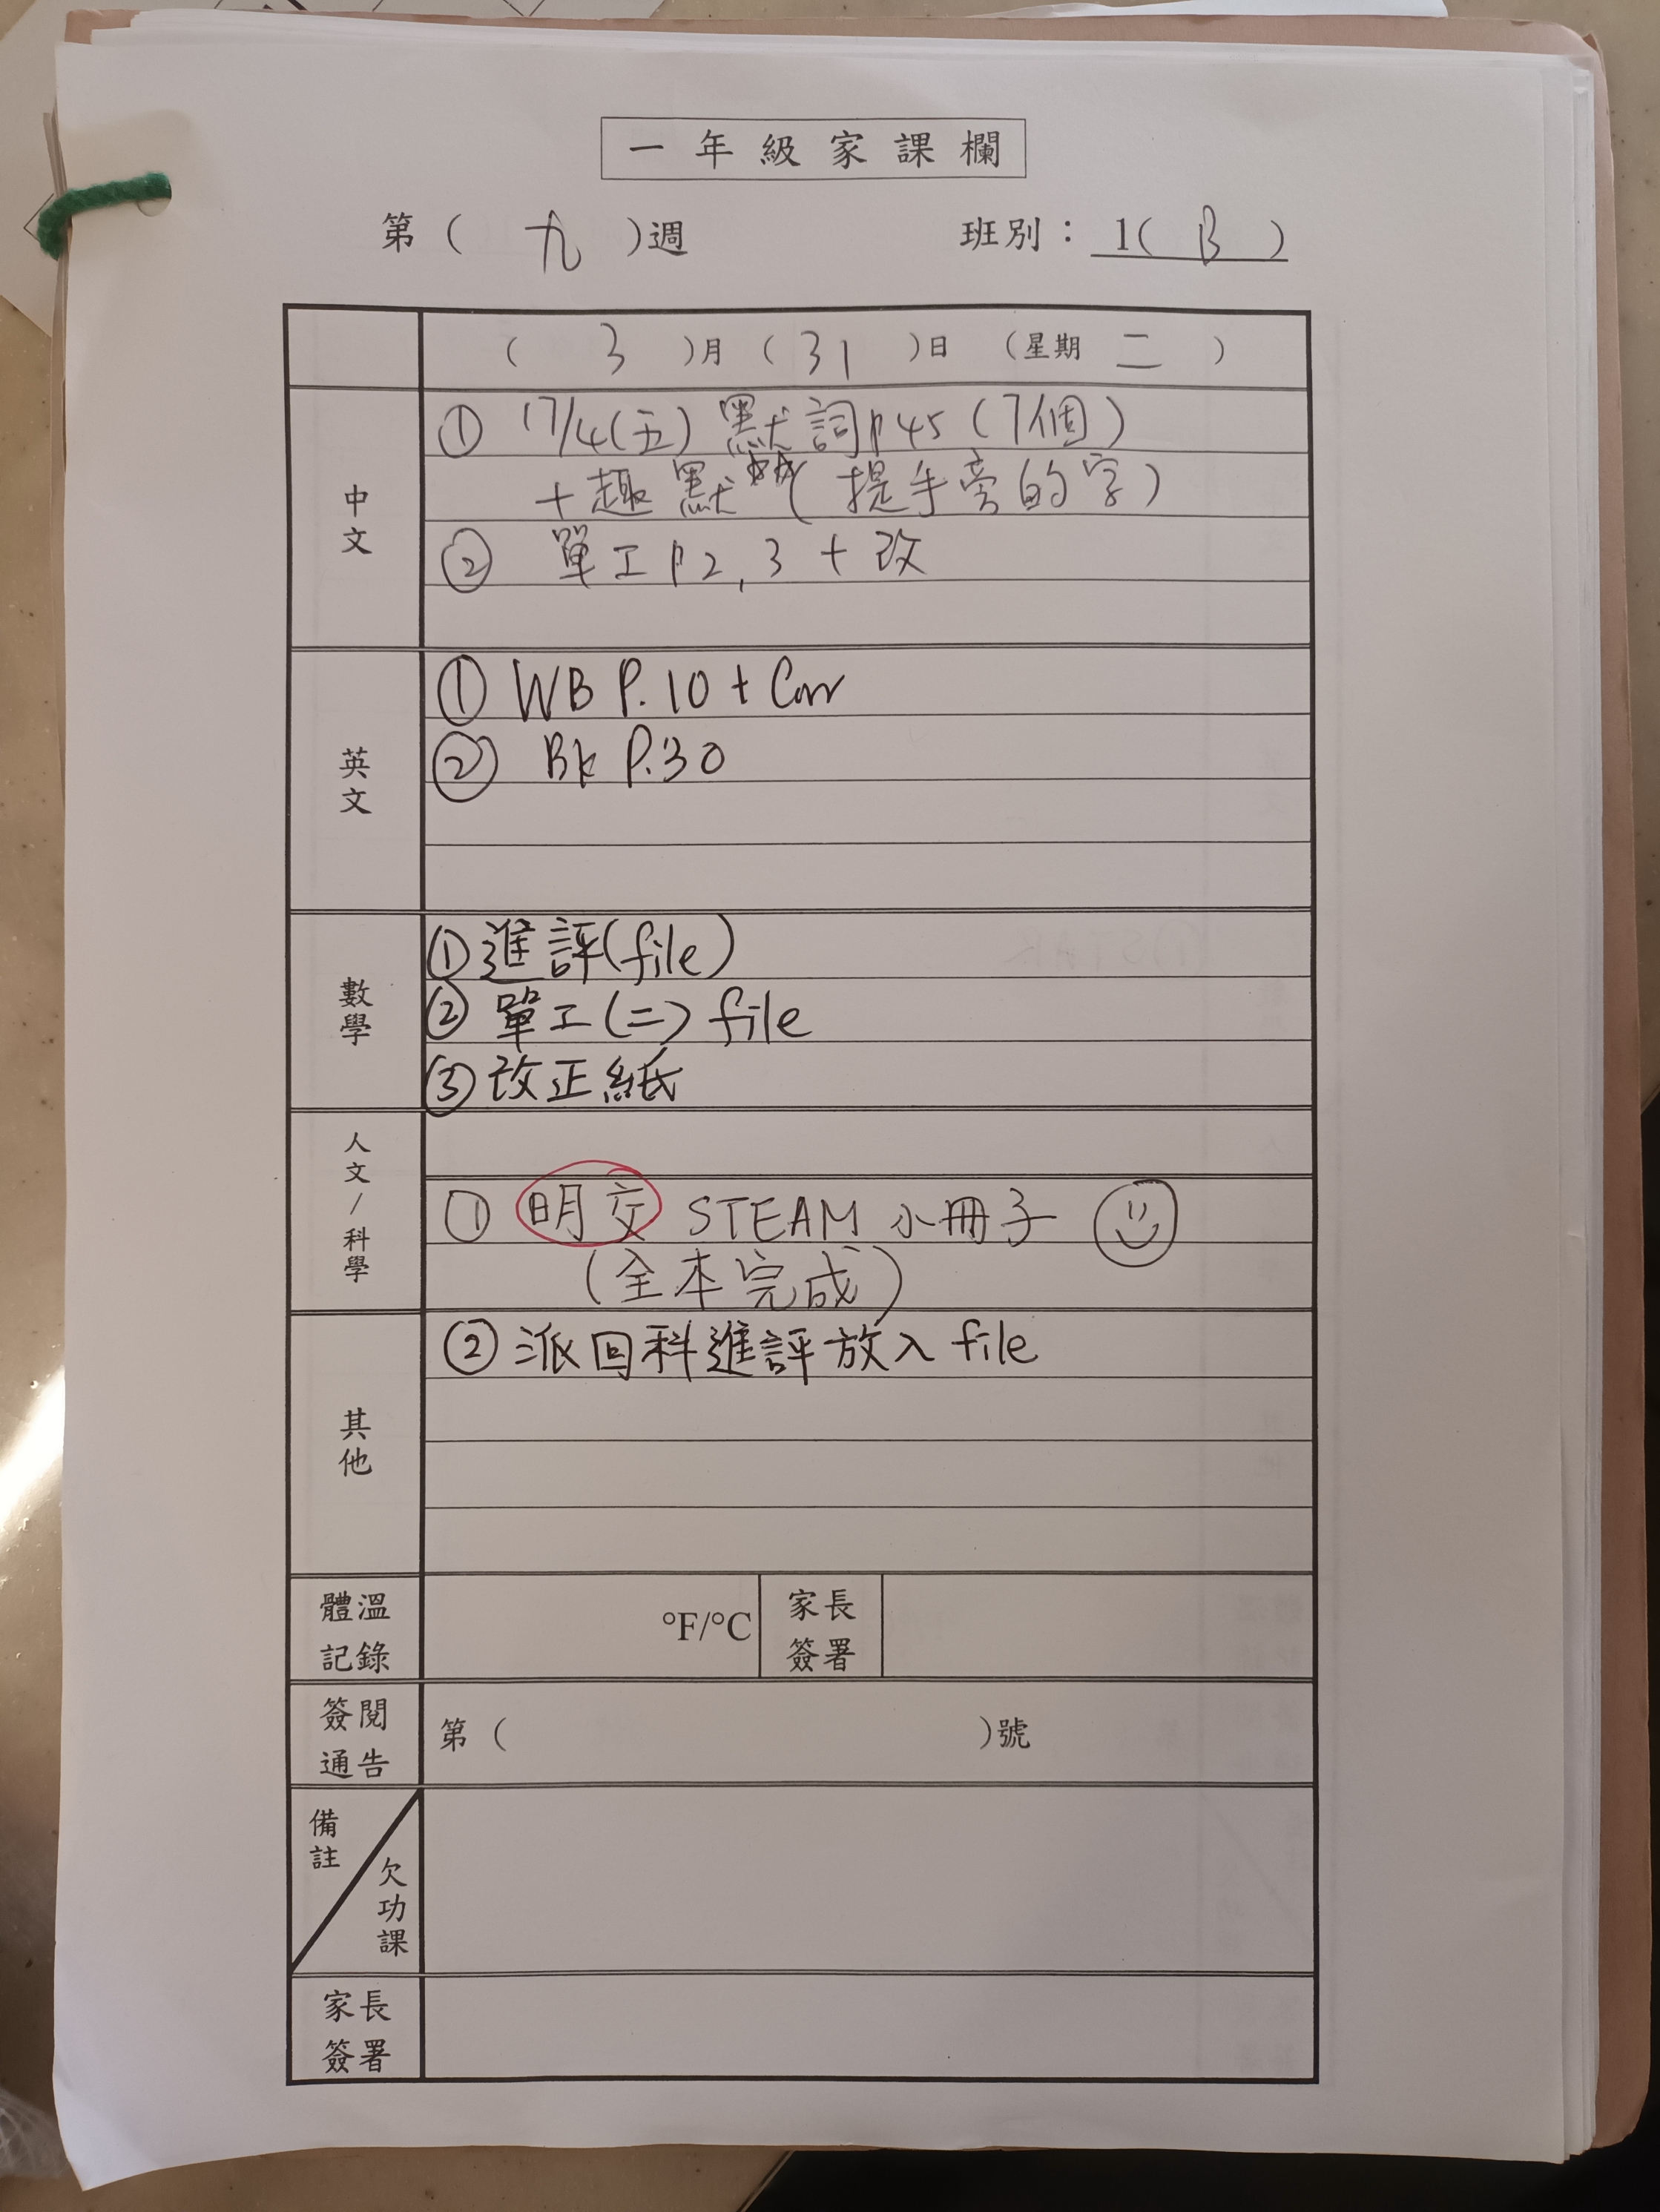 一年級家課欄
第（ 九 ）週 班別：1( B )
（ 3 ）月（ 31 ）日（星期 二 ）
中文
① 17/4(五) 默詞 p45 (7個)
+ 趣默 (提手旁的字)
② 單工 p2, 3 + 改
英文
① WB P.10 + Corr
② Bk P.30
數學
① 進評(file)
② 單工(二) file
③ 改正紙
人文/科學
① 明交 STEAM 小冊子
(全本完成)
其他
② 派回科進評放入 file
體溫記錄 °F/°C 家長簽署
簽閱通告 第（ ）號
備註/欠功課
家長簽署